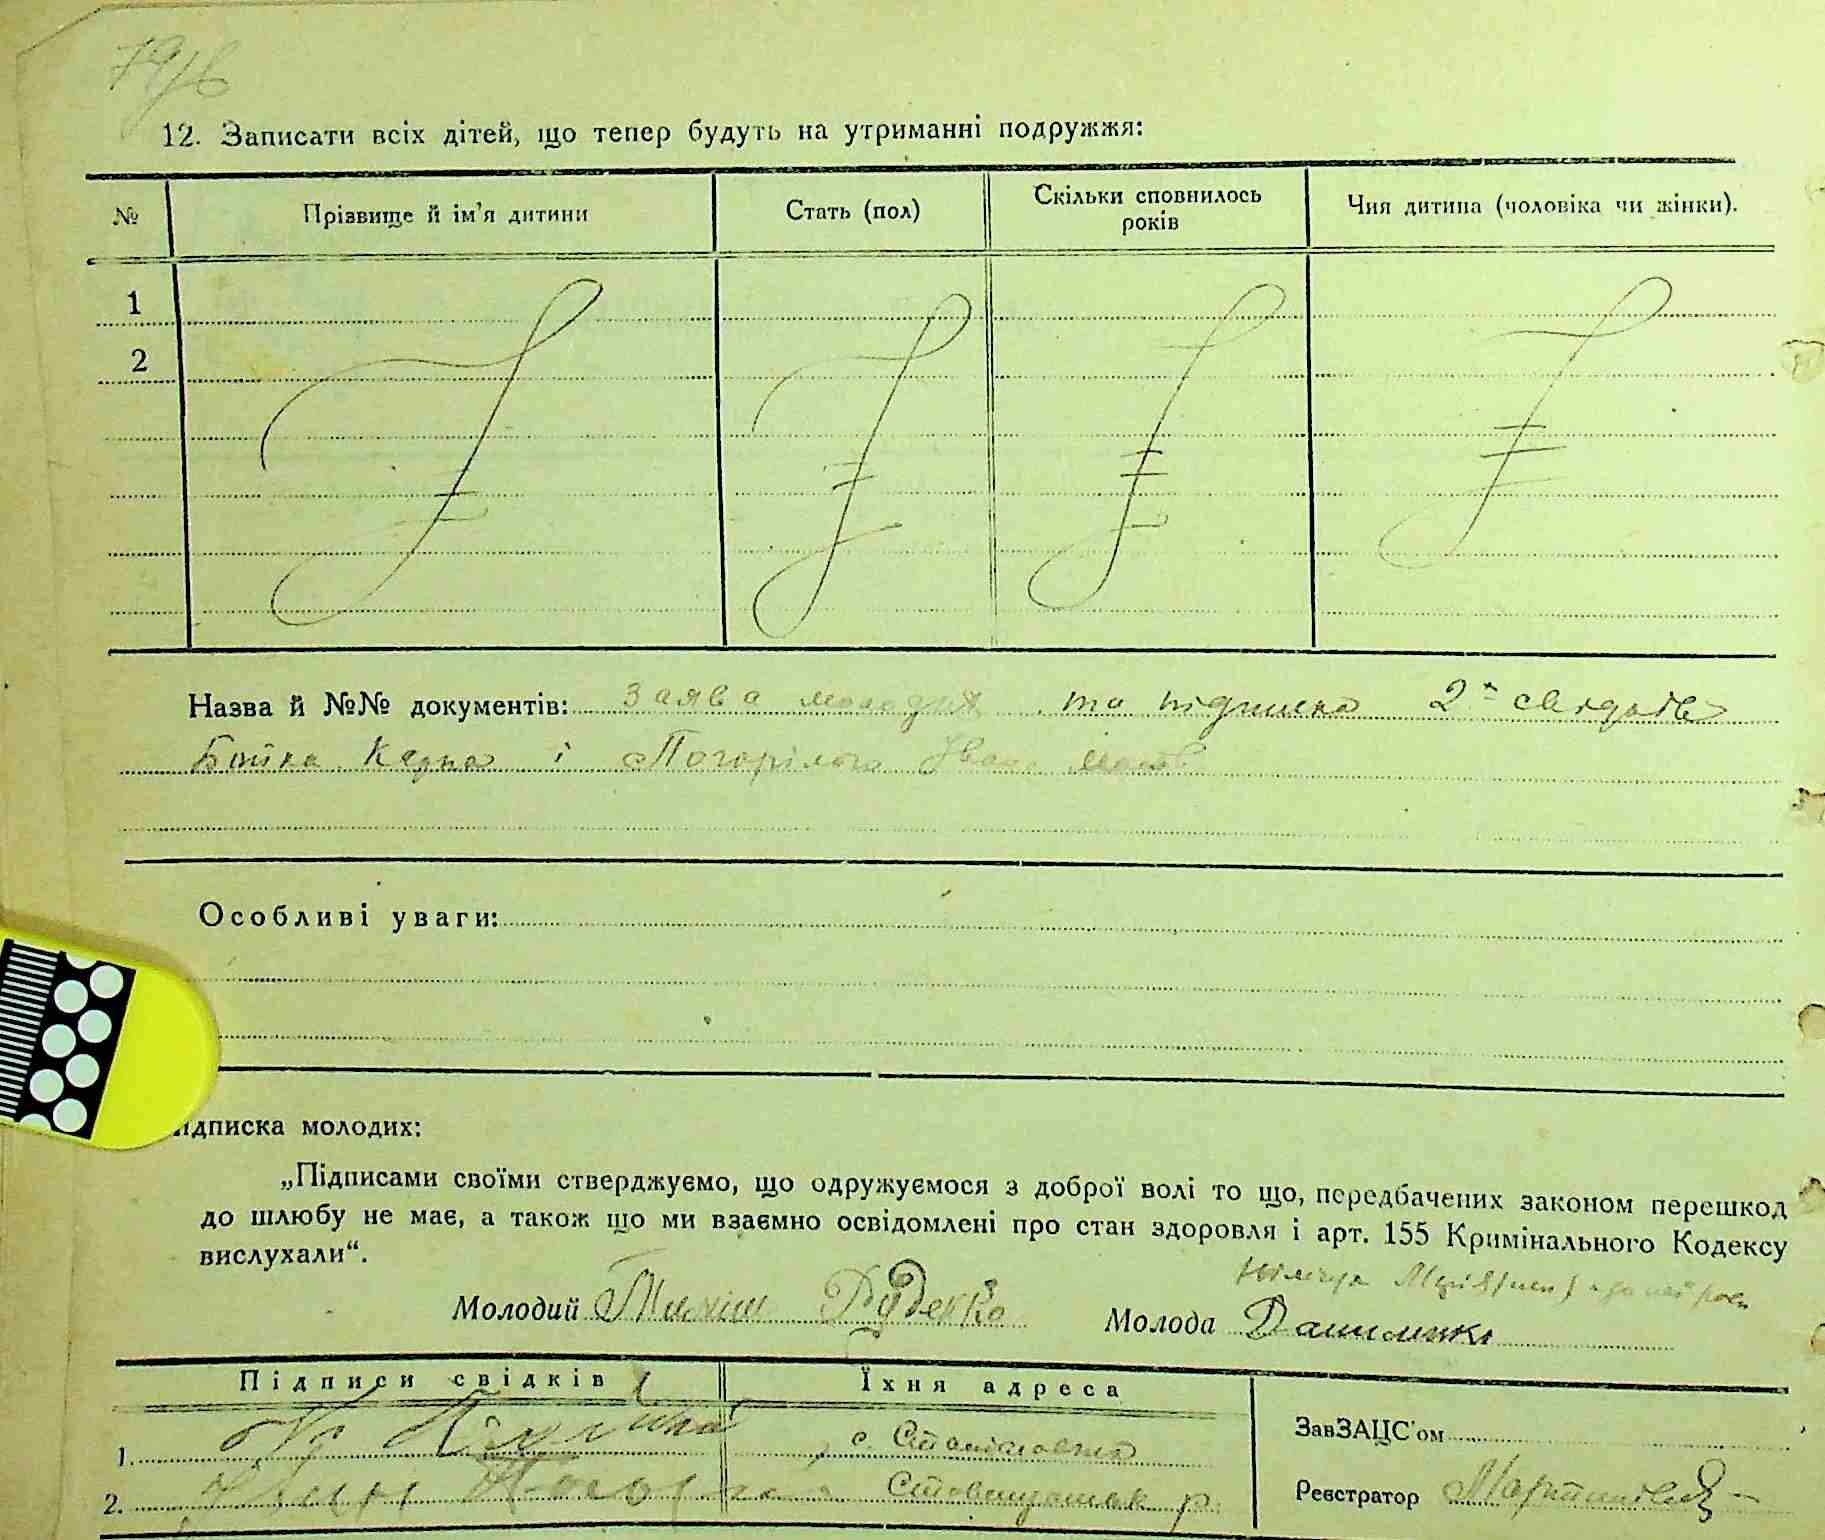 12. Записати всіх дітей, що тепер будуть на утриманні подружжя:
№ Прізвище й ім’я дитини Стать (пол) Скільки сповнилось років Чия дитина (чоловіка чи жінки).
1
2
Назва й №№ документів: Заява молодих та підписка 2х свідків
Бойка і Погорілого Івана
Особливі уваги:
ідписка молодих:
„Підписами своїми стверджуємо, що одружуємося з доброї волі то що, передбачених законом перешкод
до шлюбу не має, а також що ми взаємно освідомлені про стан здоровля і арт. 155 Кримінального Кодексу
вислухали“.
Молодий Тиміш Руденко Молода
Підписи свідків Їхня адреса
1. с.
ЗавЗАЦС’ом
2. р.
Реєстратор